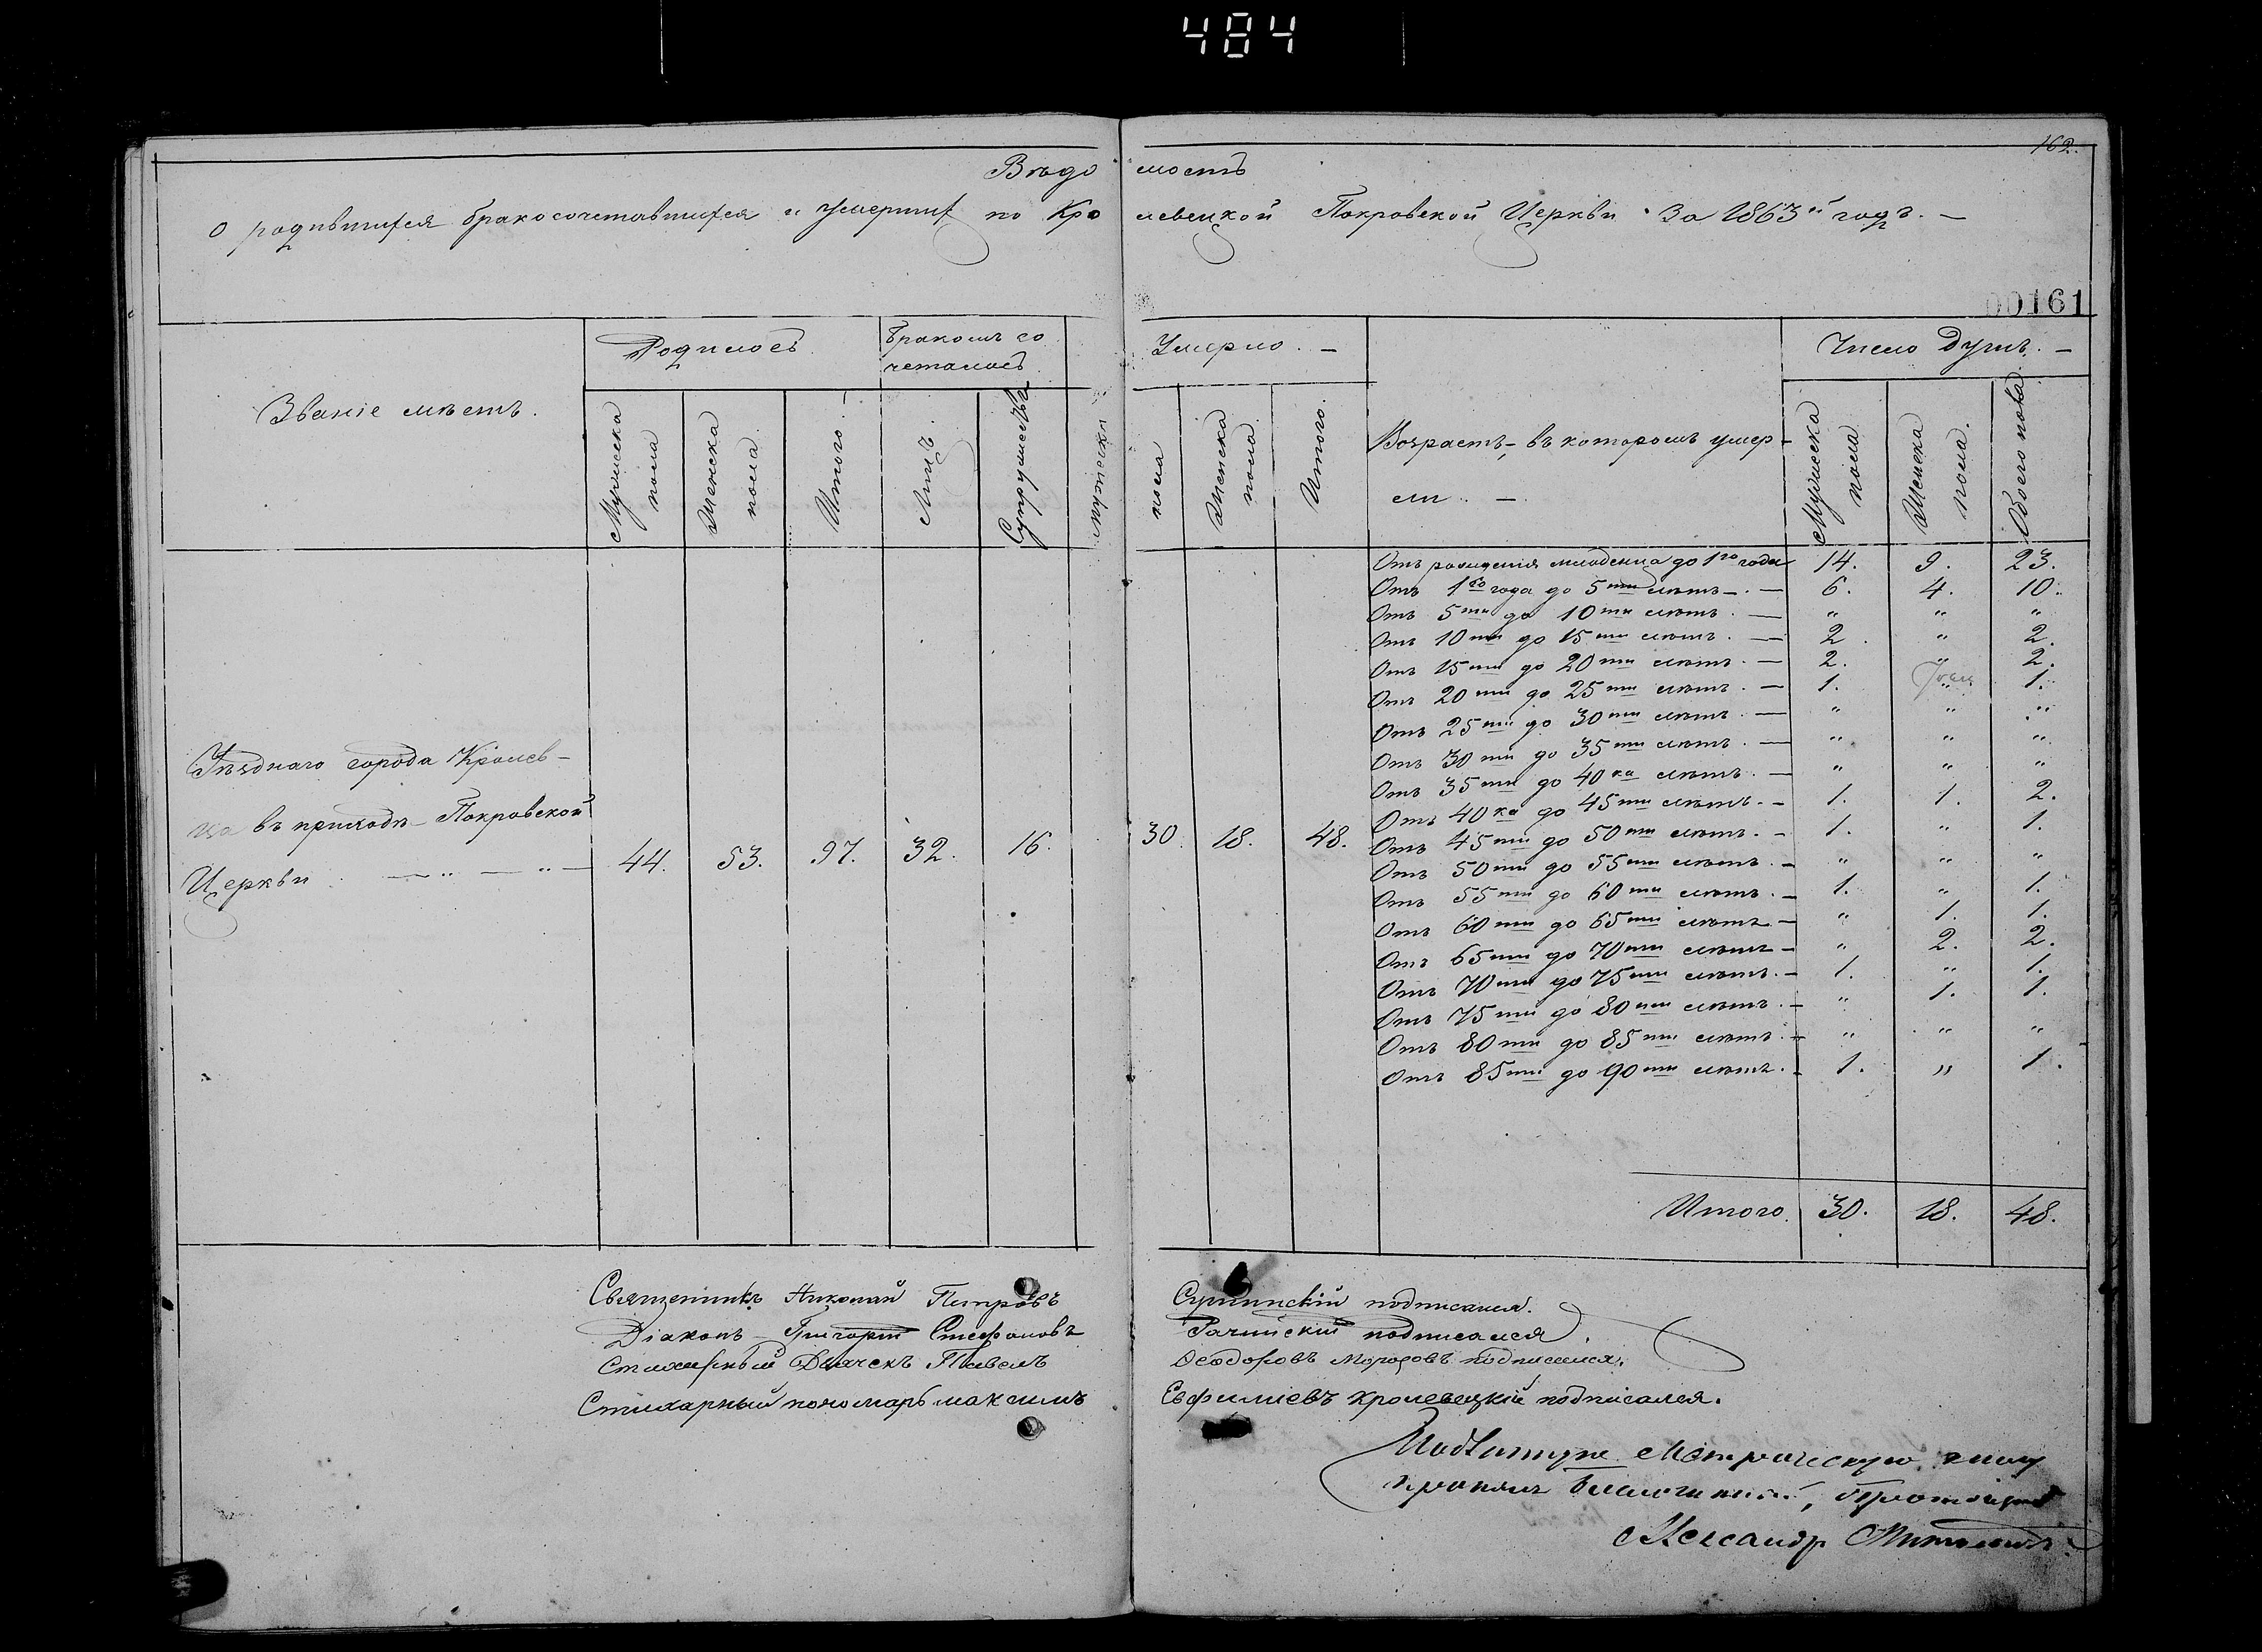 484
162.
Вѣдомость
о родившихся бракосочетавшихся и умершихъ по Кролевецкой Покровской Церкви за 1863й годъ. —
00161
Званіе мѣстъ.
Родилось
Бракомъ сочеталось
Умерло. —
Возрастъ, въ которомъ умерли. —
Число душъ. —
Мужеска пола
Женска пола.
Итого.
Лицъ.
Супружествъ
мужеска пола
Женска пола.
Итого.
Мужеска пола
Женска пола.
Обоего пола.
Уѣзднаго города Кролев-
ца въ приходѣ Покровской
Церкви — „ — „ — 44. 53. 97. 32. 16. 30. 18. 48.
Отъ рожденія младенца до 1го года 14. 9. 23.
Отъ 1го года до 5ти лѣтъ. — 6. 4. 10.
Отъ 5ти до 10ти лѣтъ. — „ „ „
Отъ 10ти до 15ти лѣтъ. — 2. „ 2.
Отъ 15ти до 20ти лѣтъ. — 2. „ 2.
Отъ 20ти до 25ти лѣтъ. — 1. „ 1.
Отъ 25ти до 30ти лѣтъ. — „ „ „
Отъ 30ти до 35ти лѣтъ. — „ „ „
Отъ 35ти до 40ка лѣтъ. — „ „ „
Отъ 40ка до 45ти лѣтъ. — 1. 1. 2.
Отъ 45ти до 50ти лѣтъ. — 1. „ 1.
Отъ 50ти до 55ти лѣтъ. — „ „ „
Отъ 55ти до 60ти лѣтъ. — 1. „ 1.
Отъ 60ти до 65ти лѣтъ — „ 1. 1.
Отъ 65ти до 70ти лѣтъ — „ 2. 2.
Отъ 70ти до 75ти лѣтъ. — 1. „ 1.
Отъ 75ти до 80ти лѣтъ. — „ 1. 1.
Отъ 80ти до 85ти лѣтъ. — „ „ „
Отъ 85ти до 90ти лѣтъ. — 1. „ 1.
Итого 30. 18. 48.
Священникъ Николай Петровъ подписался.
Діаконъ Григорій Стефановъ Рачинскій подписался.
Стихарный Дьячекъ Павелъ Ѳеодоровъ Морозовъ подписался.
Стихарный пономарь максимъ Евфиміевъ Кролевецкій подписался.
Метрическую книгу
Благочинный, Протоіерей
Александр